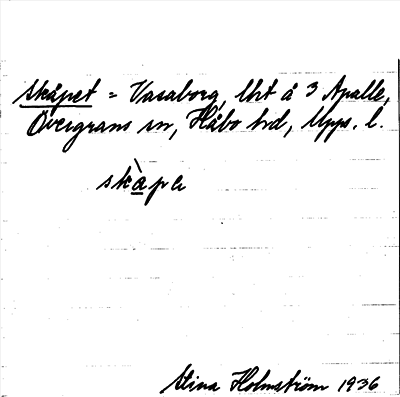 Skåpet = Vasaborg, lht å 3 Apalle,
Övergrans sn, Håbo hd, Upps. l.
skàpe
Stina Holmström 1936